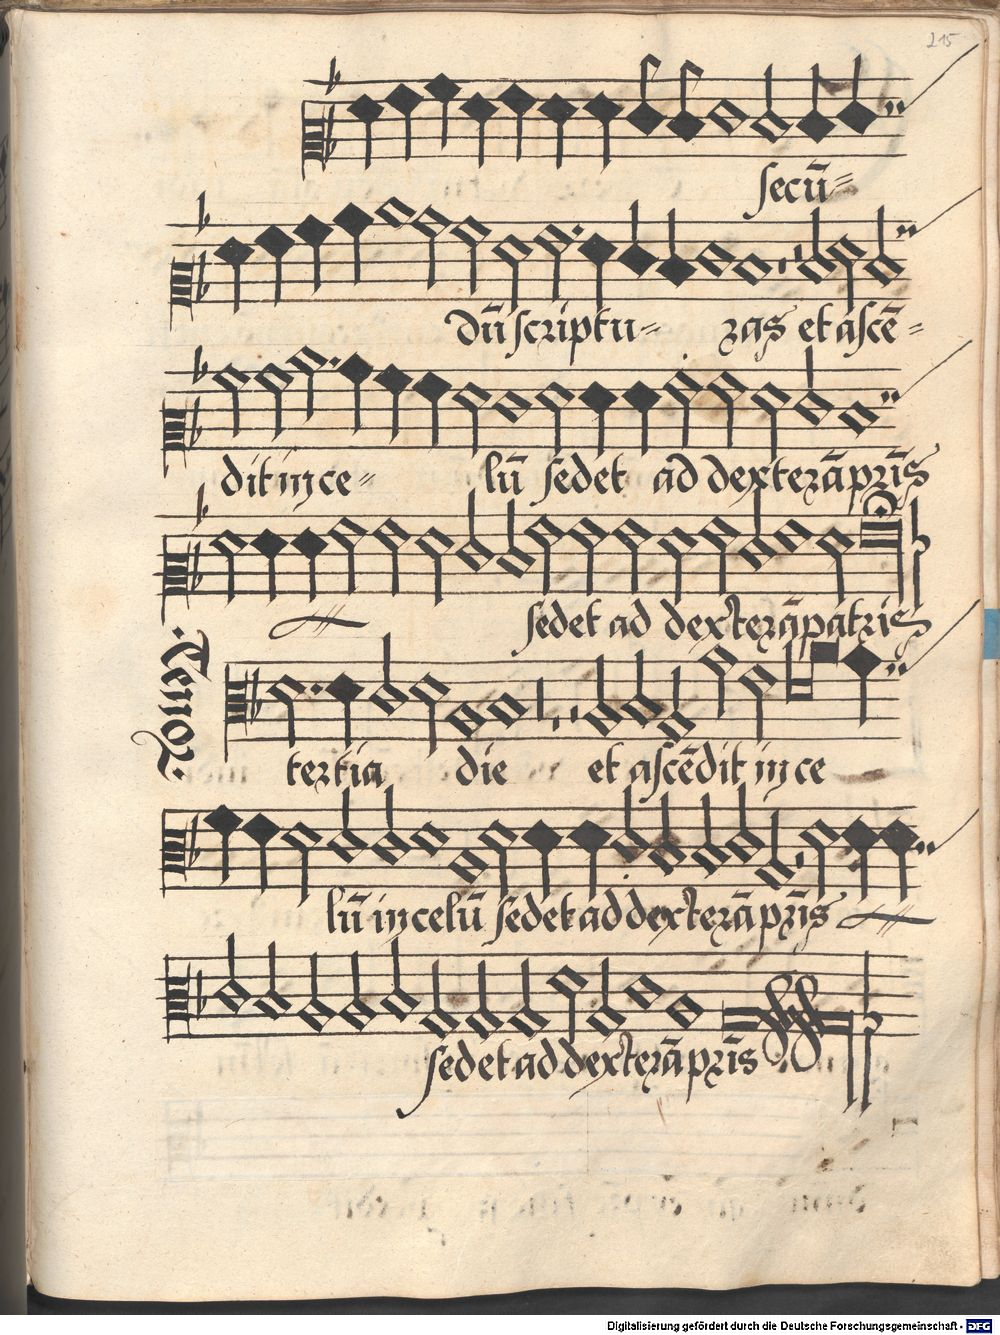 215
secū=
dū scriptu= ras et ascē=
dit in ce= lū sedet ad dexterā prīs
sedet ad dexterā patris
Tenor
tertia die et ascēdit in ce
lū in celū sedet ad dexterā prīs
sedet ad dexterā prīs
Digitalisierung gefördert durch die Deutsche Forschungsgemeinschaft - DFG